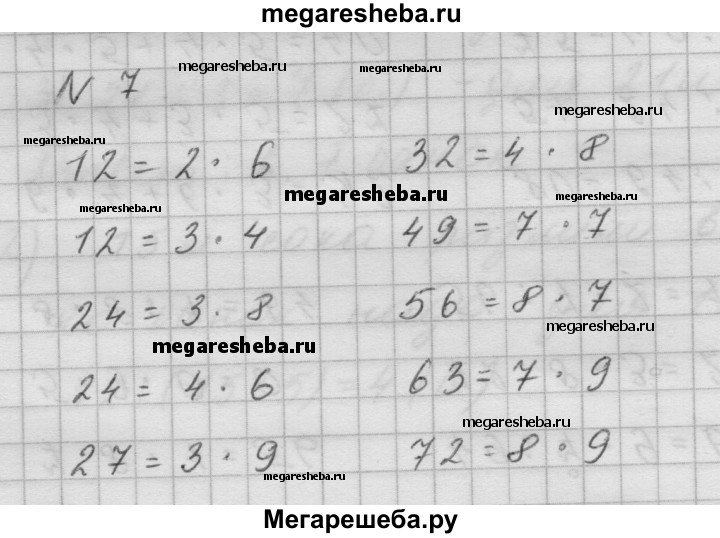 megaresheba.ru
N 7
megaresheba.ru
megaresheba.ru
megaresheba.ru
megaresheba.ru
12 = 2 · 6
32 = 4 · 8
megaresheba.ru
megaresheba.ru
megaresheba.ru
12 = 3 · 4
49 = 7 · 7
24 = 3 · 8
56 = 8 · 7
megaresheba.ru
megaresheba.ru
24 = 4 · 6
63 = 7 · 9
megaresheba.ru
27 = 3 · 9
72 = 8 · 9
megaresheba.ru
Мегарешеба.ру